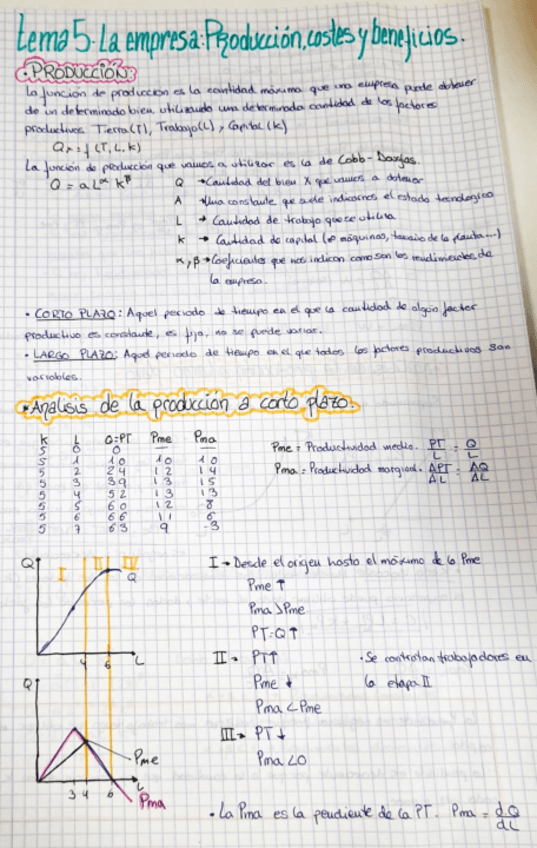 tema 5. La empresa: Producción, costes y beneficios.
· PRODUCCIÓN:
La función de producción es la cantidad máxima que una empresa puede obtener
de un determinado bien, utilizando una determinada cantidad de los factores
productivos Tierra (T), Trabajo (L), Capital (K)
Qx = f (T, L, K)
La función de producción que vamos a utilizar es la de Cobb-Douglas.
Q = a L^α K^β
Q → Cantidad del bien X que vamos a obtener
A → Una constante que suele indicarnos el estado tecnologico
L → Cantidad de trabajo que se utiliza
K → Cantidad de capital (nº máquinas, tamaño de la planta...)
α, β → Coeficientes que nos indican como son los rendimientos de
la empresa.
· CORTO PLAZO: Aquel periodo de tiempo en el que la cantidad de algún factor
productivo es constante, es fija, no se puede variar.
· LARGO PLAZO: Aquel periodo de tiempo en el que todos los factores productivos son
variables.
* Análisis de la producción a corto plazo.
K L Q=PT Pme Pma
5 0 0
5 1 10 10 10
5 2 24 12 14
5 3 39 13 15
5 4 52 13 13
5 5 60 12 8
5 6 66 11 6
5 7 63 9 -3
Pme = Productividad media. PT/L = Q/L
Pma = Productividad marginal. ΔPT/ΔL = ΔQ/ΔL
Q I II III
Q
4 6 L
I → Desde el origen hasta el máximo de la Pme
Pme ↑
Pma > Pme
PT=Q ↑
II → PT ↑
Pme ↓
Pma < Pme
· Se contratan trabajadores en
la etapa II
III → PT ↓
Pma < 0
Q
Pme
3 4 6 L
Pma
· La Pma es la pendiente de la PT. Pma = dQ/dL